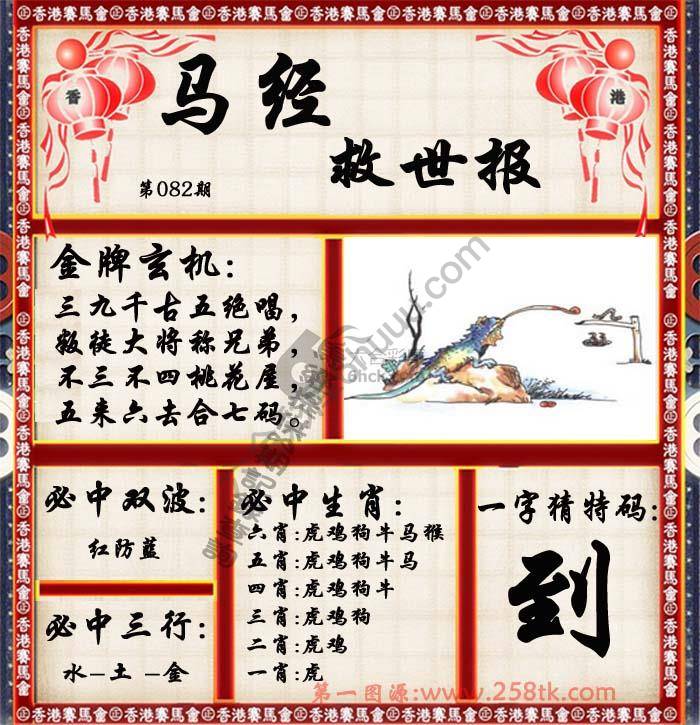 香
港
马经
救世报
第082期
金牌玄机：
三九千古五绝唱，
叛徒大将称兄弟，
不三不四桃花屋，
五来六去合七码。
必中双波：
红防蓝
必中三行：
水-土-金
必中生肖：
六肖:虎鸡狗牛马猴
五肖:虎鸡狗牛马
四肖:虎鸡狗牛
三肖:虎鸡狗
二肖:虎鸡
一肖:虎
一字猜特码：
到
第一图源:www.258tk.com
香港賽馬會